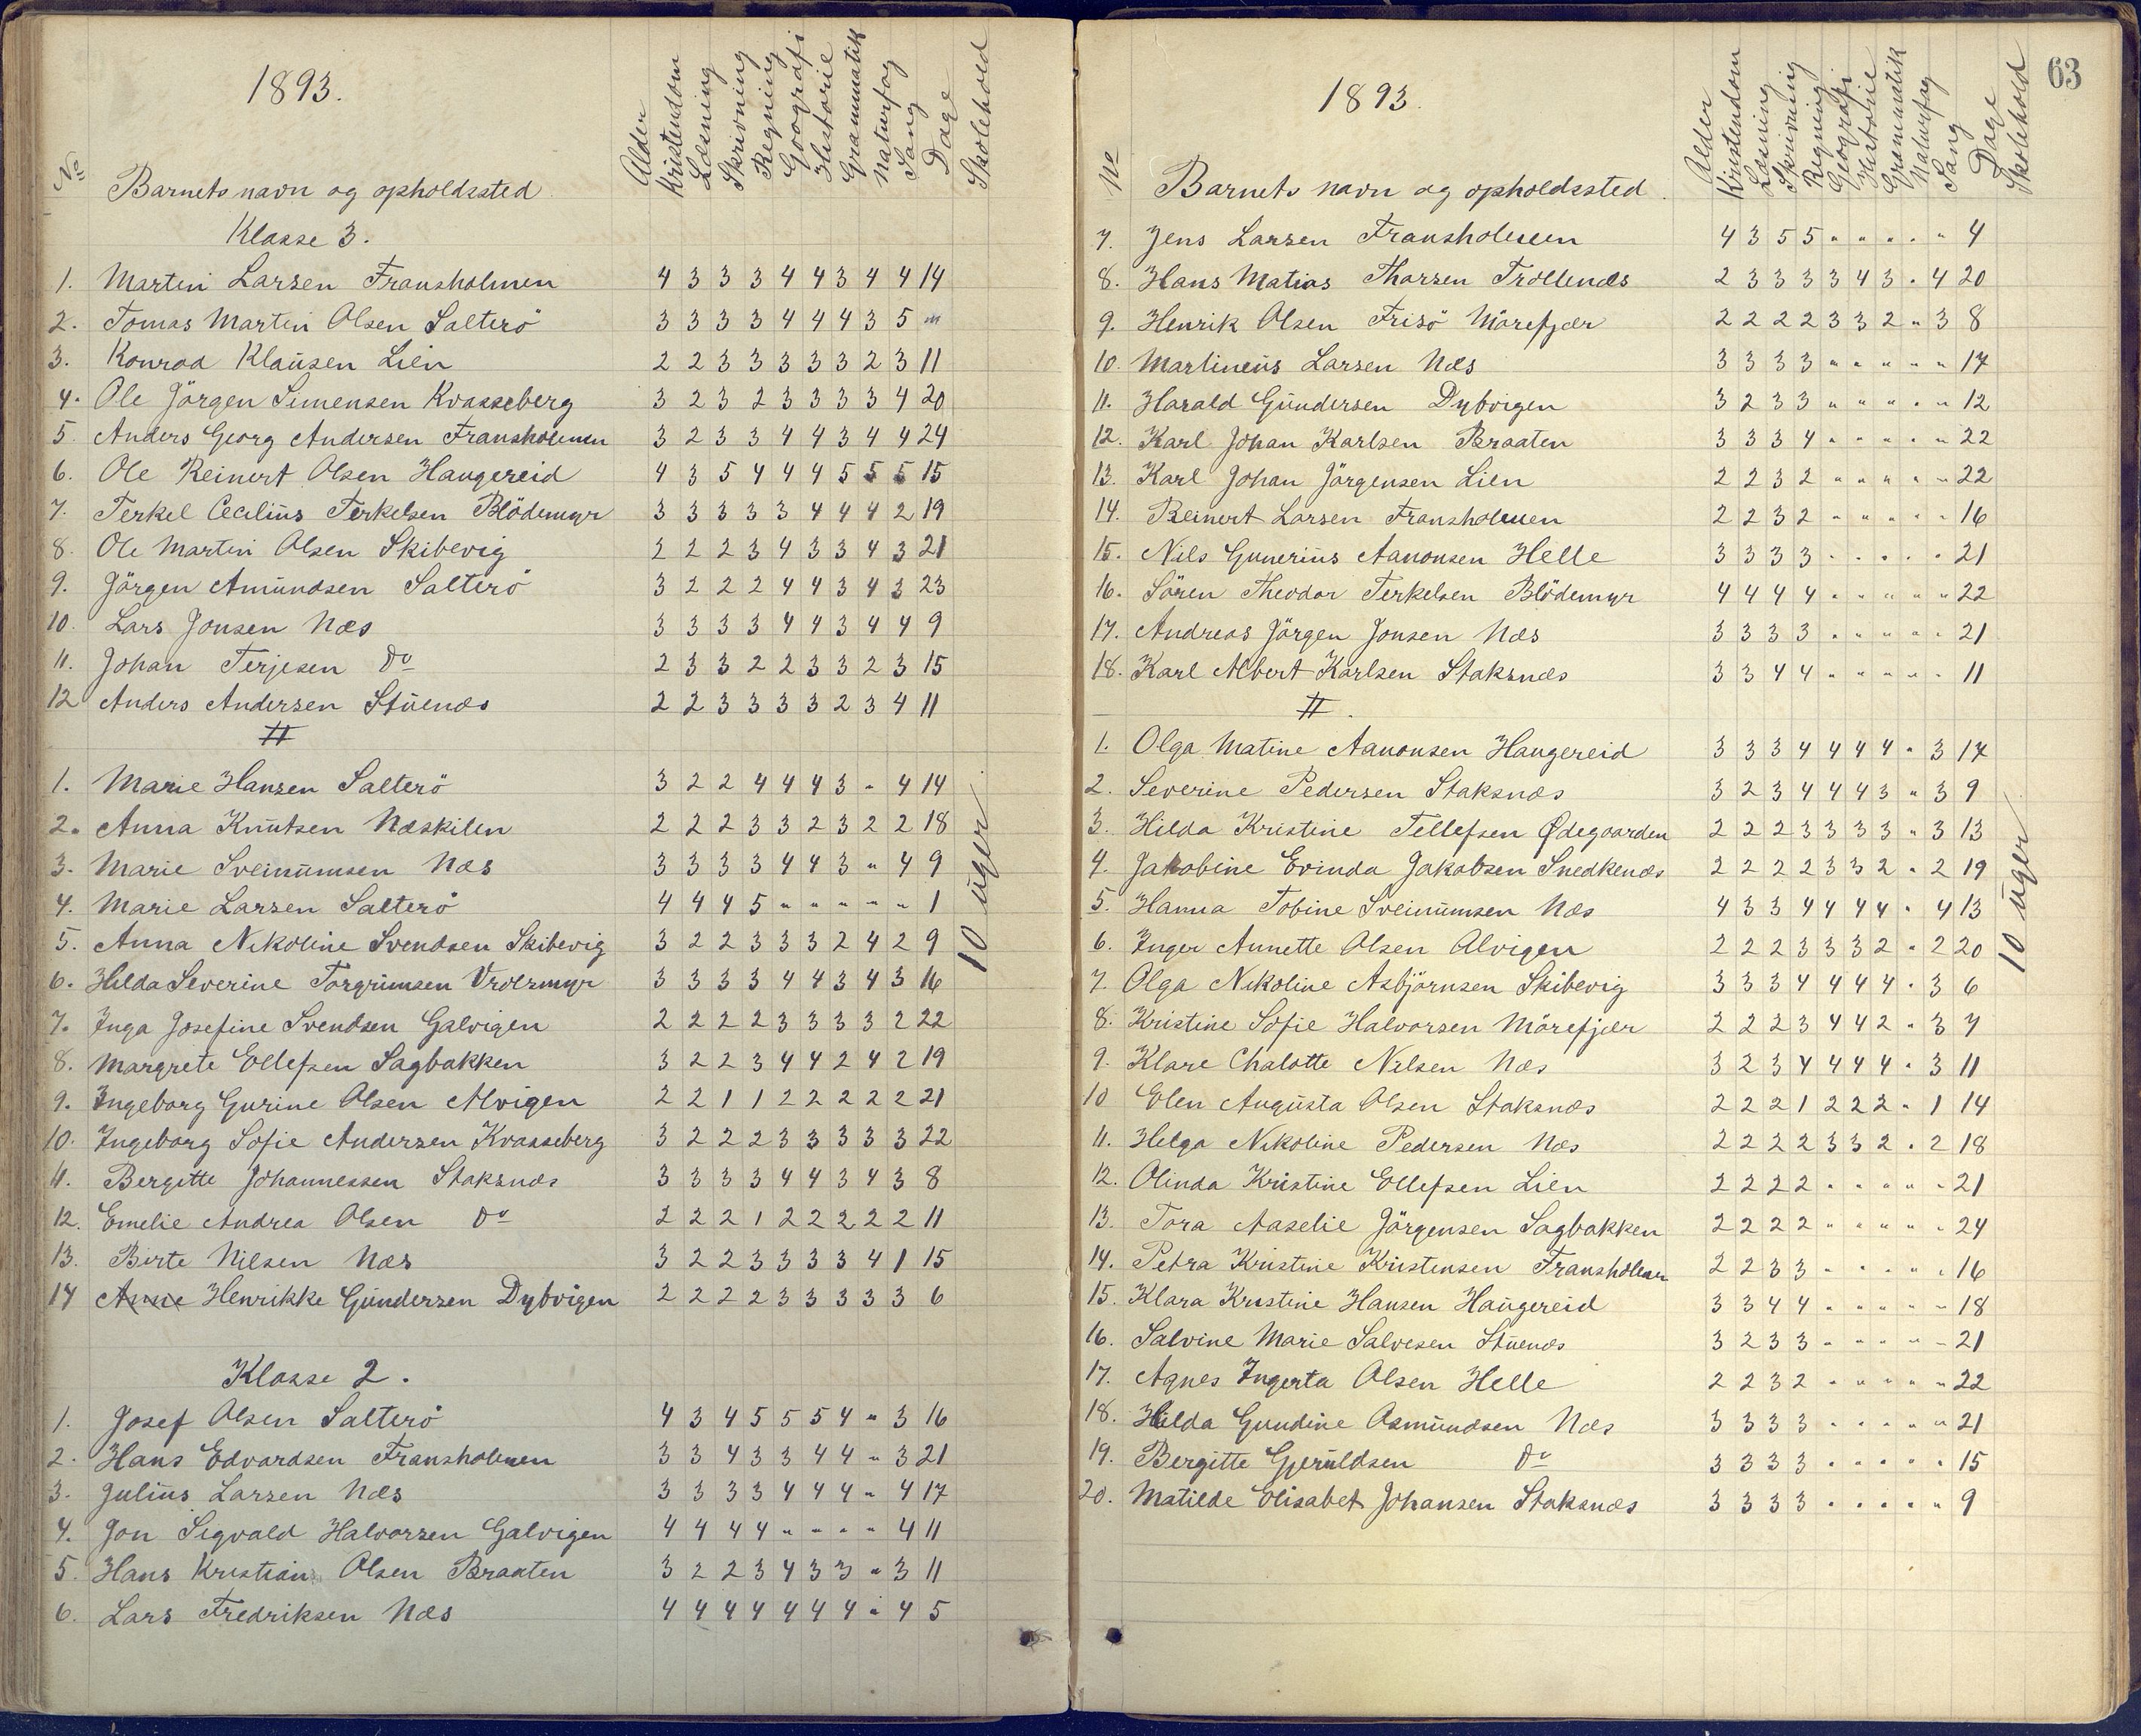 1893.
No Barnets navn og opholdssted Alder Kristendom Læsning Skrivning Regning Geografi Historie Grammatik Naturfag Sang Dage Skolehold
Klasse 3.
1. Martin Larsen Fransholmen 4 3 3 3 4 4 3 4 4 14
2. Tomas Martin Olsen Salterö 3 3 3 3 4 4 4 3 5 "
3. Konrad Klausen Lien 2 2 3 3 3 3 3 2 3 11
4. Ole Jörgen Simensen Kvasseberg 3 2 3 2 3 3 3 3 4 20
5. Anders Georg Andersen Fransholmen 3 2 3 3 4 4 3 4 4 24
6. Ole Reinert Olsen Haugereid 4 3 5 4 4 4 5 5 5 15
7. Terkel Cecilius Terkelsen Blödemyr 3 3 3 3 3 4 4 4 2 19
8. Ole Martin Olsen Skibevig 2 2 2 3 4 3 3 4 3 21
9. Jörgen Amundsen Salterö 3 2 2 2 4 4 3 4 3 23
10. Lars Jonsen Næs 3 3 3 3 4 4 3 4 4 9
11. Johan Terjesen Do 2 3 3 2 2 3 3 2 3 15
12 Anders Andersen Stuenæs 2 2 3 3 3 3 2 3 4 11
#
1. Marie Hansen Salterö 3 2 2 4 4 4 3 " 4 14
2. Anna Knutsen Næskilen 2 2 2 3 3 2 3 2 2 18
3. Marie Sveinumsen Næs 3 3 3 3 4 4 3 " 4 9
4. Marie Larsen Salterö 4 4 4 5 " " " " " 1
5. Anna Nikoline Svendsen Skibevig 3 2 2 3 3 3 2 4 2 9
6. Hilda Severine Torgrimsen Vrolsmyr 3 3 3 3 4 4 3 4 3 16
7. Inga Josefine Svendsen Galvigen 2 2 2 2 3 3 3 3 2 22
8. Margrete Ellefsen Sagbakken 3 2 2 3 4 4 2 4 2 19
9. Ingeborg Gurine Olsen Alvigen 2 2 1 1 2 2 2 2 2 21
10. Ingeborg Sofie Andersen Kvasseberg 3 2 2 2 3 3 3 3 3 22
11. Bergitte Johannessen Staksnæs 3 3 3 3 4 4 3 4 3 8
12. Emelie Andrea Olsen Do 2 2 2 1 2 2 2 2 2 11
13. Birte Nilsen Næs 3 2 2 3 3 3 3 4 1 15
14 Anne Henrikke Gundersen Dybvigen 2 2 2 2 3 3 3 3 3 6
10 uger
Klasse 2.
1. Josef Olsen Salterö 4 3 4 5 5 5 4 " 3 16
2. Hans Edvardsen Fransholmen 3 3 4 3 3 4 4 " 3 21
3. Julius Larsen Næs 3 3 3 3 4 4 4 " 4 17
4. Jon Sigvald Halvorsen Galvigen 4 4 4 4 " " " " 4 11
5. Hans Kristian Olsen Braaten 3 2 2 3 4 3 3 " 3 11
6. Lars Fredriksen Næs 4 4 4 4 4 4 4 " 4 5
63
1893.
No Barnets navn og opholdssted. Alder Kristendom Læsning Skrivning Regning Geografi Historie Grammatik Naturfag Sang Dage Skolehold
7. Jens Larsen Fransholmen 4 3 5 5 " " " " " 4
8. Hans Matias Thorsen Trollenæs 2 3 3 3 3 4 3 " 4 20
9. Henrik Olsen Frisö Mörefjær 2 2 2 2 3 3 2 " 3 8
10. Martineus Larsen Næs 3 3 3 3 " " " " " 17
11. Harald Gundersen Dybvigen 3 2 3 3 " " " " " 12
12. Karl Johan Karlsen Braaten 3 3 3 4 " " " " " 22
13. Karl Johan Jörgensen Lien 2 2 3 2 " " " " " 22
14. Reinert Larsen Fransholmen 2 2 3 2 " " " " " 16
15. Nils Gunerius Aanonsen Helle 3 3 3 3 " " " " " 21
16. Sören Theodor Terkelsen Blödemyr 4 4 4 4 " " " " " 22
17. Andreas Jörgen Jonsen Næs 3 3 3 3 " " " " " 21
18. Karl Albert Karlsen Staksnæs 3 3 4 4 " " " " " 11
#.
1. Olga Matine Aanonsen Haugereid 3 3 3 4 4 4 4 " 3 17
2. Severine Pedersen Staksnæs 3 2 3 4 4 4 3 " 3 9
3. Hilda Kristine Tellefsen Ødegaarden 2 2 2 3 3 3 3 " 3 13
4. Jakobine Evinda Jakobsen Snedkenæs 2 2 2 2 3 3 2 " 2 19
5. Hanna Tobine Sveinumsen Næs 4 3 3 4 4 4 4 " 4 13
6. Inger Annette Olsen Alvigen 2 2 2 3 3 3 2 " 2 20
7. Olga Nikoline Asbjörnsen Skibevig 3 3 3 4 4 4 4 " 3 6
8. Kristine Sofie Halvorsen Mörefjær 2 2 2 3 4 4 2 " 3 7
9. Klare Chalotte Nilsen Næs 3 2 3 4 4 4 4 " 3 11
10 Elen Augusta Olsen Staksnæs 2 2 2 1 2 2 2 " 1 14
11. Helga Nikoline Pedersen Næs 2 2 2 2 3 3 2 " 2 18
12. Olinda Kristine Ellefsen Lien 2 2 2 2 " " " " " 21
13. Tora Aaselie Jörgensen Sagbakken 2 2 2 2 " " " " " 24
14. Petra Kristine Kristensen Fransholmen 2 2 3 3 " " " " " 16
15. Klara Kristine Hansen Haugereid 3 3 4 4 " " " " " 18
16. Salvine Marie Salvesen Stuenæs 3 2 3 3 " " " " " 21
17. Agnes Ingerta Olsen Helle 2 2 3 2 " " " " " 22
18. Hilda Gundine Asmundsen Næs 3 3 3 3 " " " " " 21
19. Bergitte Gjeruldsen Do 3 3 3 3 " " " " " 15
20. Matilde Elisabet Johansen Staksnæs 3 3 3 3 " " " " " 9
10 uger